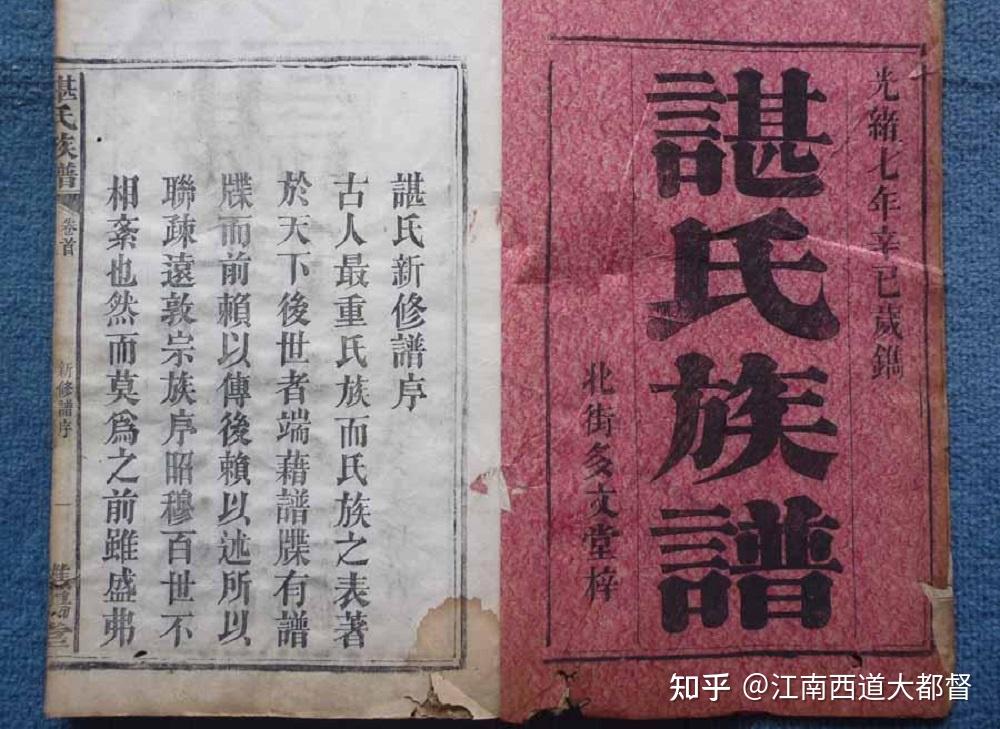 光緒七年辛巳歲鐫
諶氏族譜
北街多文堂梓
諶氏新修譜序
古人最重氏族而氏族之表著
於天下後世者端藉譜牒有譜
牒而前賴以傳後賴以述所以
聯疎遠敦宗族序昭穆百世不
相紊也然而莫爲之前雖盛弗
諶氏族譜
卷首
新修譜序
一
知乎 @江南西道大都督